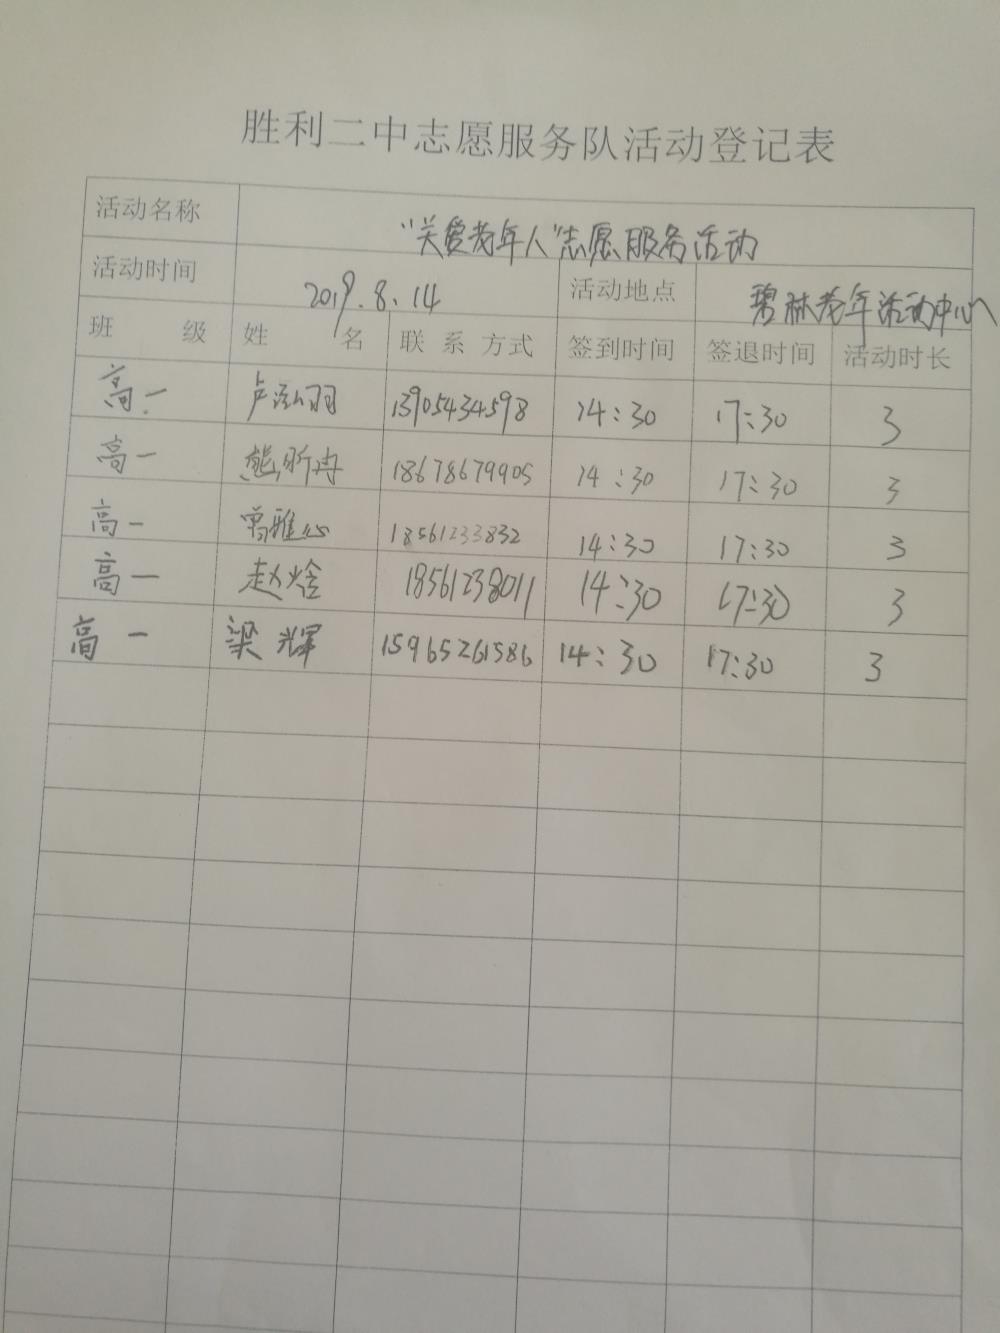 胜利二中志愿服务队活动登记表
活动名称 "关爱老年人"志愿服务活动
活动时间 2019.8.14 活动地点 碧林老年活动中心
班 级 姓 名 联系方式 签到时间 签退时间 活动时长
高一 卢泓羽 13905434598 14:30 17:30 3
高一 熊昕冉 18678679905 14:30 17:30 3
高一 曾雅心 18561233832 14:30 17:30 3
高一 赵焓 18561238011 14:30 17:30 3
高一 梁辉 15965261586 14:30 17:30 3